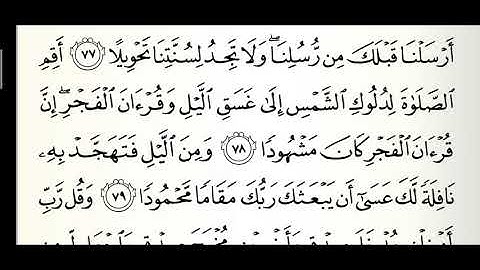 أَرْسَلْنَا قَبْلَكَ مِن رُّسُلِنَا ۖ وَلَا تَجِدُ لِسُنَّتِنَا تَحْوِيلًا ٧٧ أَقِمِ
ٱلصَّلَوٰةَ لِدُلُوكِ ٱلشَّمْسِ إِلَىٰ غَسَقِ ٱلَّيْلِ وَقُرْءَانَ ٱلْفَجْرِ ۖ إِنَّ
قُرْءَانَ ٱلْفَجْرِ كَانَ مَشْهُودًا ٧٨ وَمِنَ ٱلَّيْلِ فَتَهَجَّدْ بِهِۦ
نَافِلَةً لَّكَ عَسَىٰٓ أَن يَبْعَثَكَ رَبُّكَ مَقَامًا مَّحْمُودًا ٧٩ وَقُل رَّبِّ